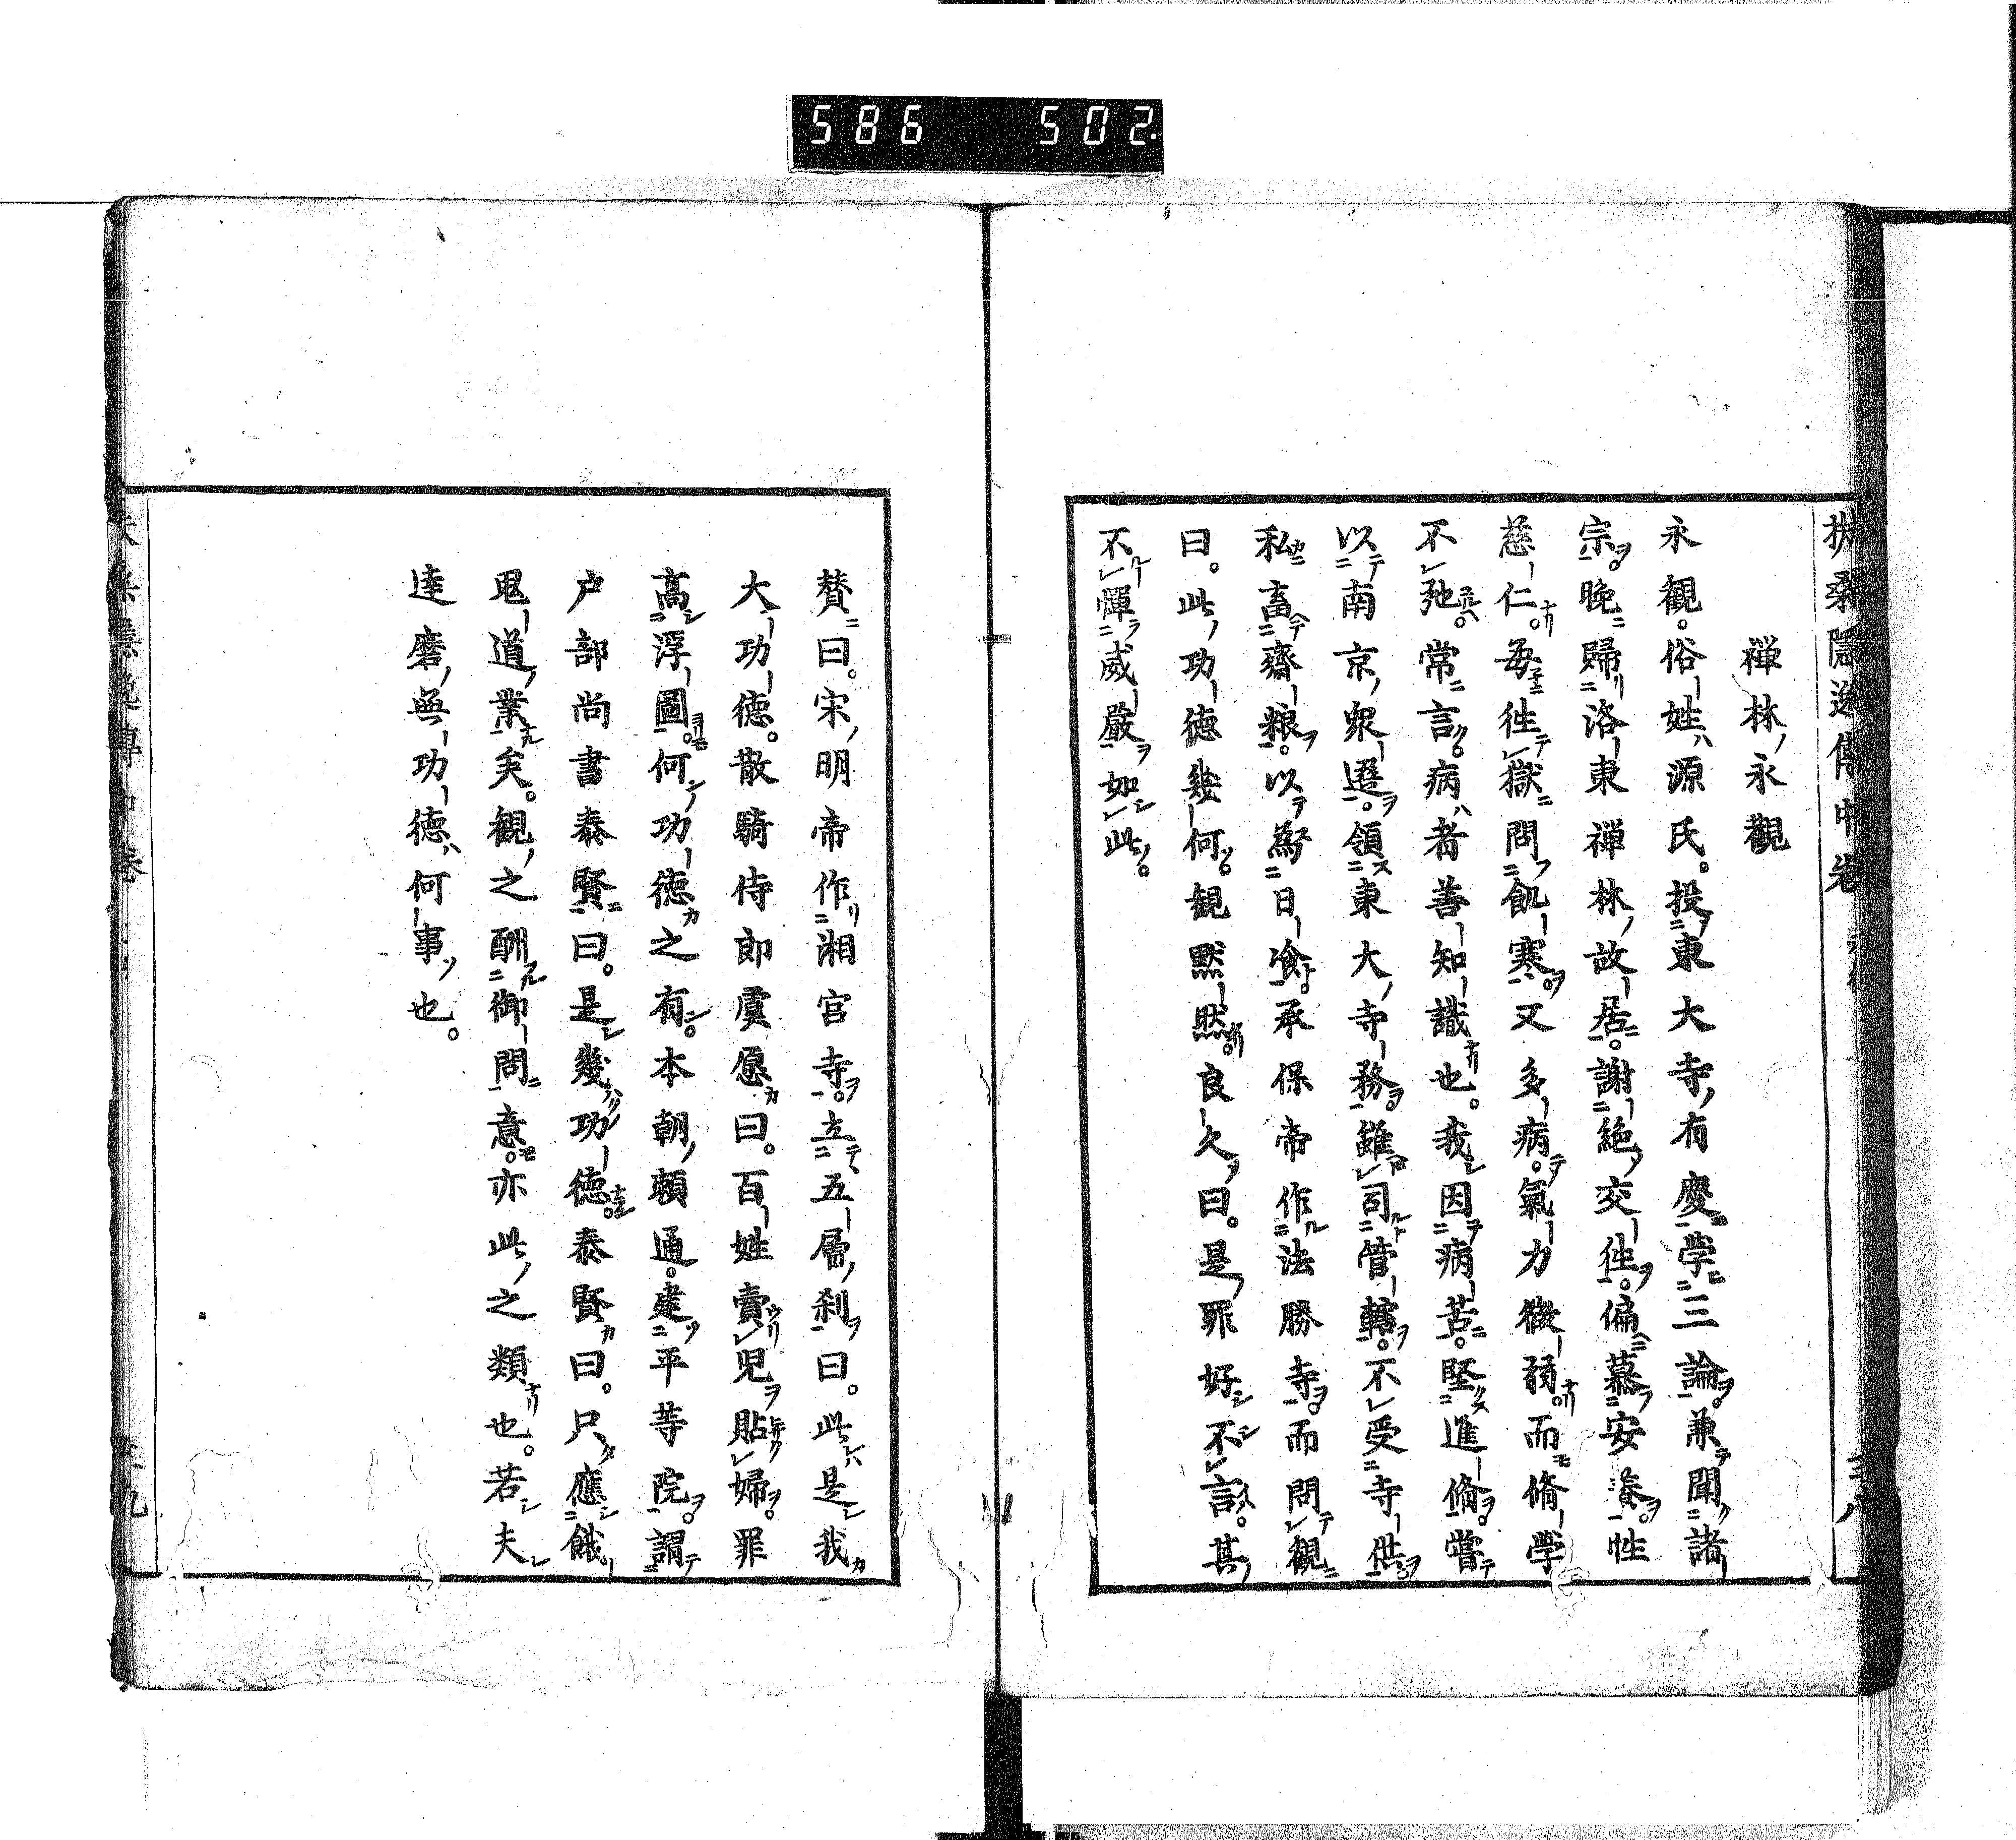 586 502
扶桑隱逸傳中卷
禅林永觀
永観。俗姓源氏。投東大寺有慶学三論。兼聞諸
宗。晩歸洛東禅林故居。謝絶交徃。偏慕安養。性
慈仁。毎徃獄問飢寒。又多病。氣力微弱。而脩学
不弛。常言。病者善知識也。我因病苦。堅進脩。嘗
以南京衆選。領東大寺務。雖司管轄。不受寺供。
私畜齋粮。以為日飡。承保帝作法勝寺。而問観
曰。此功徳幾何。観黙黙。良久曰。是罪好不言。其
不憚威嚴如此。
賛曰。宋明帝作湘宮寺。立五層刹。曰。此是我
大功徳。散騎侍郎虞愿曰。百姓賣児貼婦。罪
髙浮圖。何功徳之有。本朝頼通。建平等院。謂
户部尚書泰賢曰。是幾功徳。泰賢曰。只應餓
鬼道業矣。観之酬御問意。亦此之類也。若夫
達磨無功徳何事也。